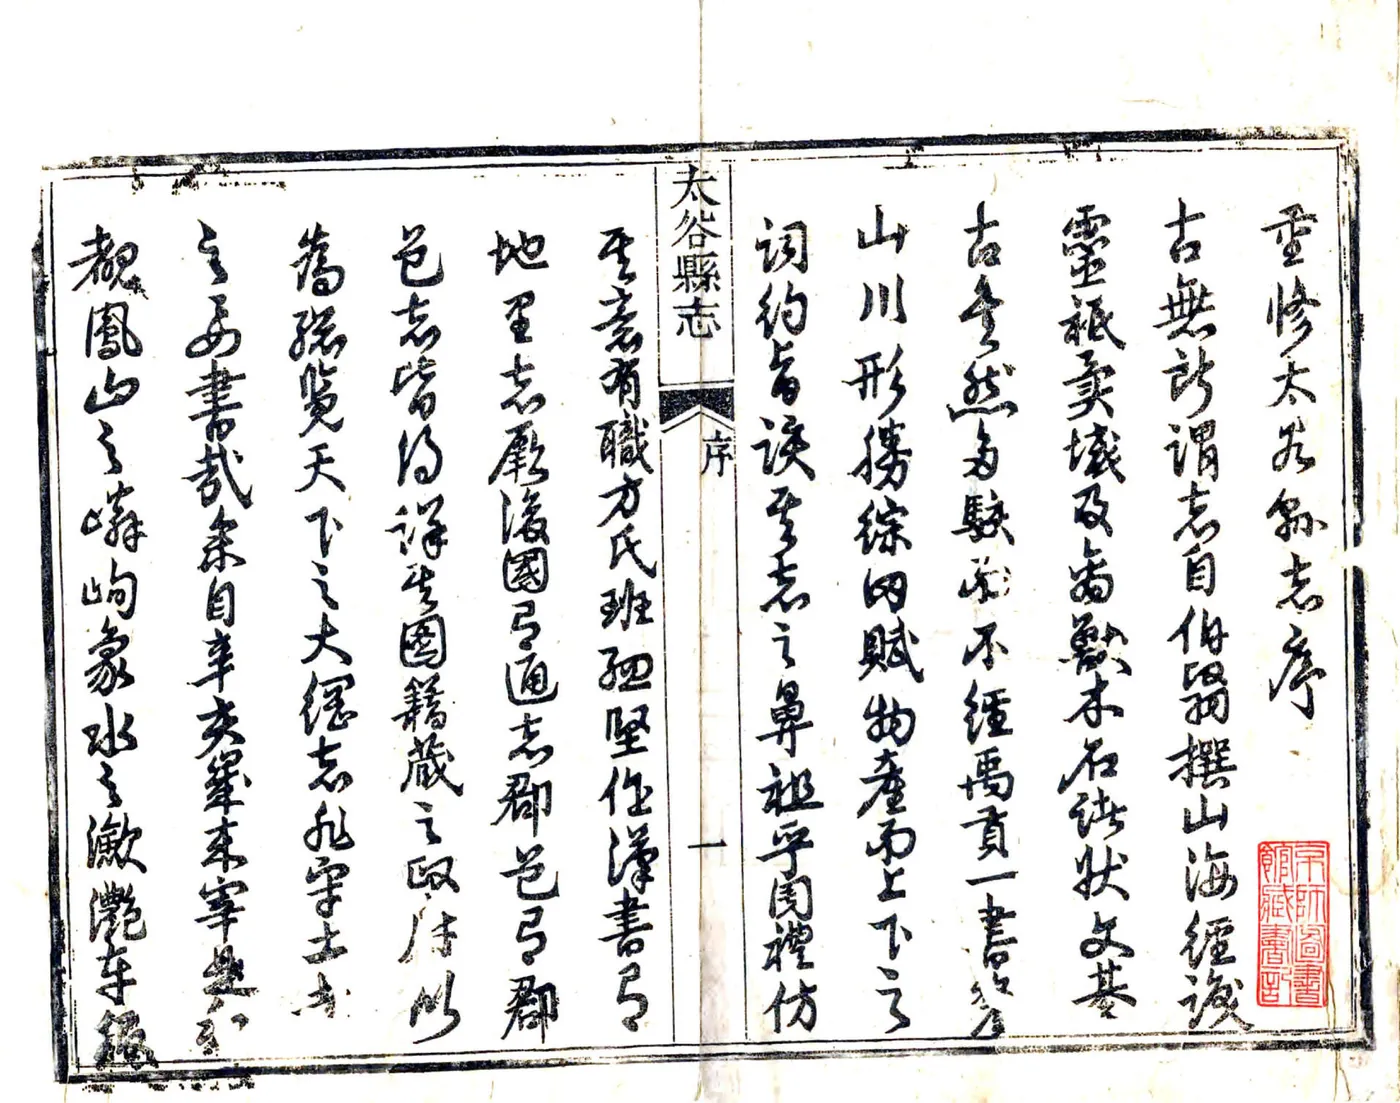 重修太谷縣志序
古無所謂志自伯翳撰山海經識
靈祇異域及禽獸木石諸狀文甚
古矣然多駭而不經禹貢一書
山川形勝綜田賦物產而上下之
詞約旨該其志之鼻祖乎周禮仿
太谷縣志 序 一
其意有職方氏班孟堅作漢書有
地里志厥後國有通志郡邑有郡
邑志皆得詳其圖籍藏之政府以
為總覽天下之大綱志非守土者
之要書哉余自辛亥歲來宰是
觀鳳山之嶙峋象水之瀲灧車
京師圖書
館臧書記